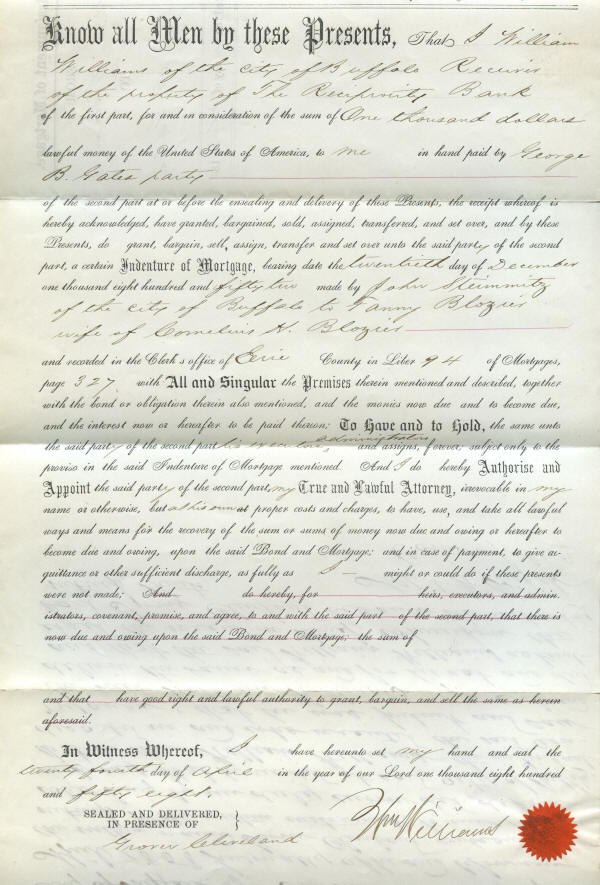 Know all Men by these Presents, That I William
Williams of the city of Buffalo Receiver
of the property of The Reciprocity Bank
of the first part, for and in consideration of the sum of One thousand dollars
lawful money of the United States of America, to me in hand paid by George
B. Gates party
of the second part at or before the ensealing and delivery of these Presents, the receipt whereof is
hereby acknowledged, have granted, bargained, sold, assigned, transferred, and set over, and by these
Presents, do grant, bargain, sell, assign, transfer and set over unto the said party of the second
part, a certain Indenture of Mortgage, bearing date the twentieth day of December
one thousand eight hundred and fifty two made by John Steinmitz
of the city of Buffalo to Fanny Blozier
wife of Cornelius H. Blozier
and recorded in the Clerk's office of Erie County in Liber 94 of Mortgages,
page 327. with All and Singular the Premises therein mentioned and described, together
with the bond or obligation therein also mentioned, and the monies now due and to become due,
and the interest now or hereafter to be paid thereon; To Have and to Hold, the same unto
the said party of the second part his executors administrators and assigns, forever; subject only to the
proviso in the said Indenture of Mortgage mentioned. And I do hereby Authorise and
Appoint the said party of the second part, my True and Lawful Attorney, irrevocable in my
name or otherwise, but at his own proper costs and charges, to have, use, and take all lawful
ways and means for the recovery of the sum or sums of money now due and owing or hereafter to
become due and owing, upon the said Bond and Mortgage; and in case of payment, to give ac-
quittance or other sufficient discharge, as fully as I might or could do if these presents
were not made; And do hereby, for heirs, executors, and admin-
istrators, covenant, promise, and agree, to and with the said part of the second part, that there is
now due and owing upon the said Bond and Mortgage; the sum of
and that have good right and lawful authority to grant, bargain, and sell the same as herein
aforesaid.
In Witness Whereof, I have hereunto set my hand and seal the
twenty fourth day of April in the year of our Lord one thousand eight hundred
and fifty eight.
SEALED AND DELIVERED,
IN PRESENCE OF
Grover Cleveland
Wm Williams